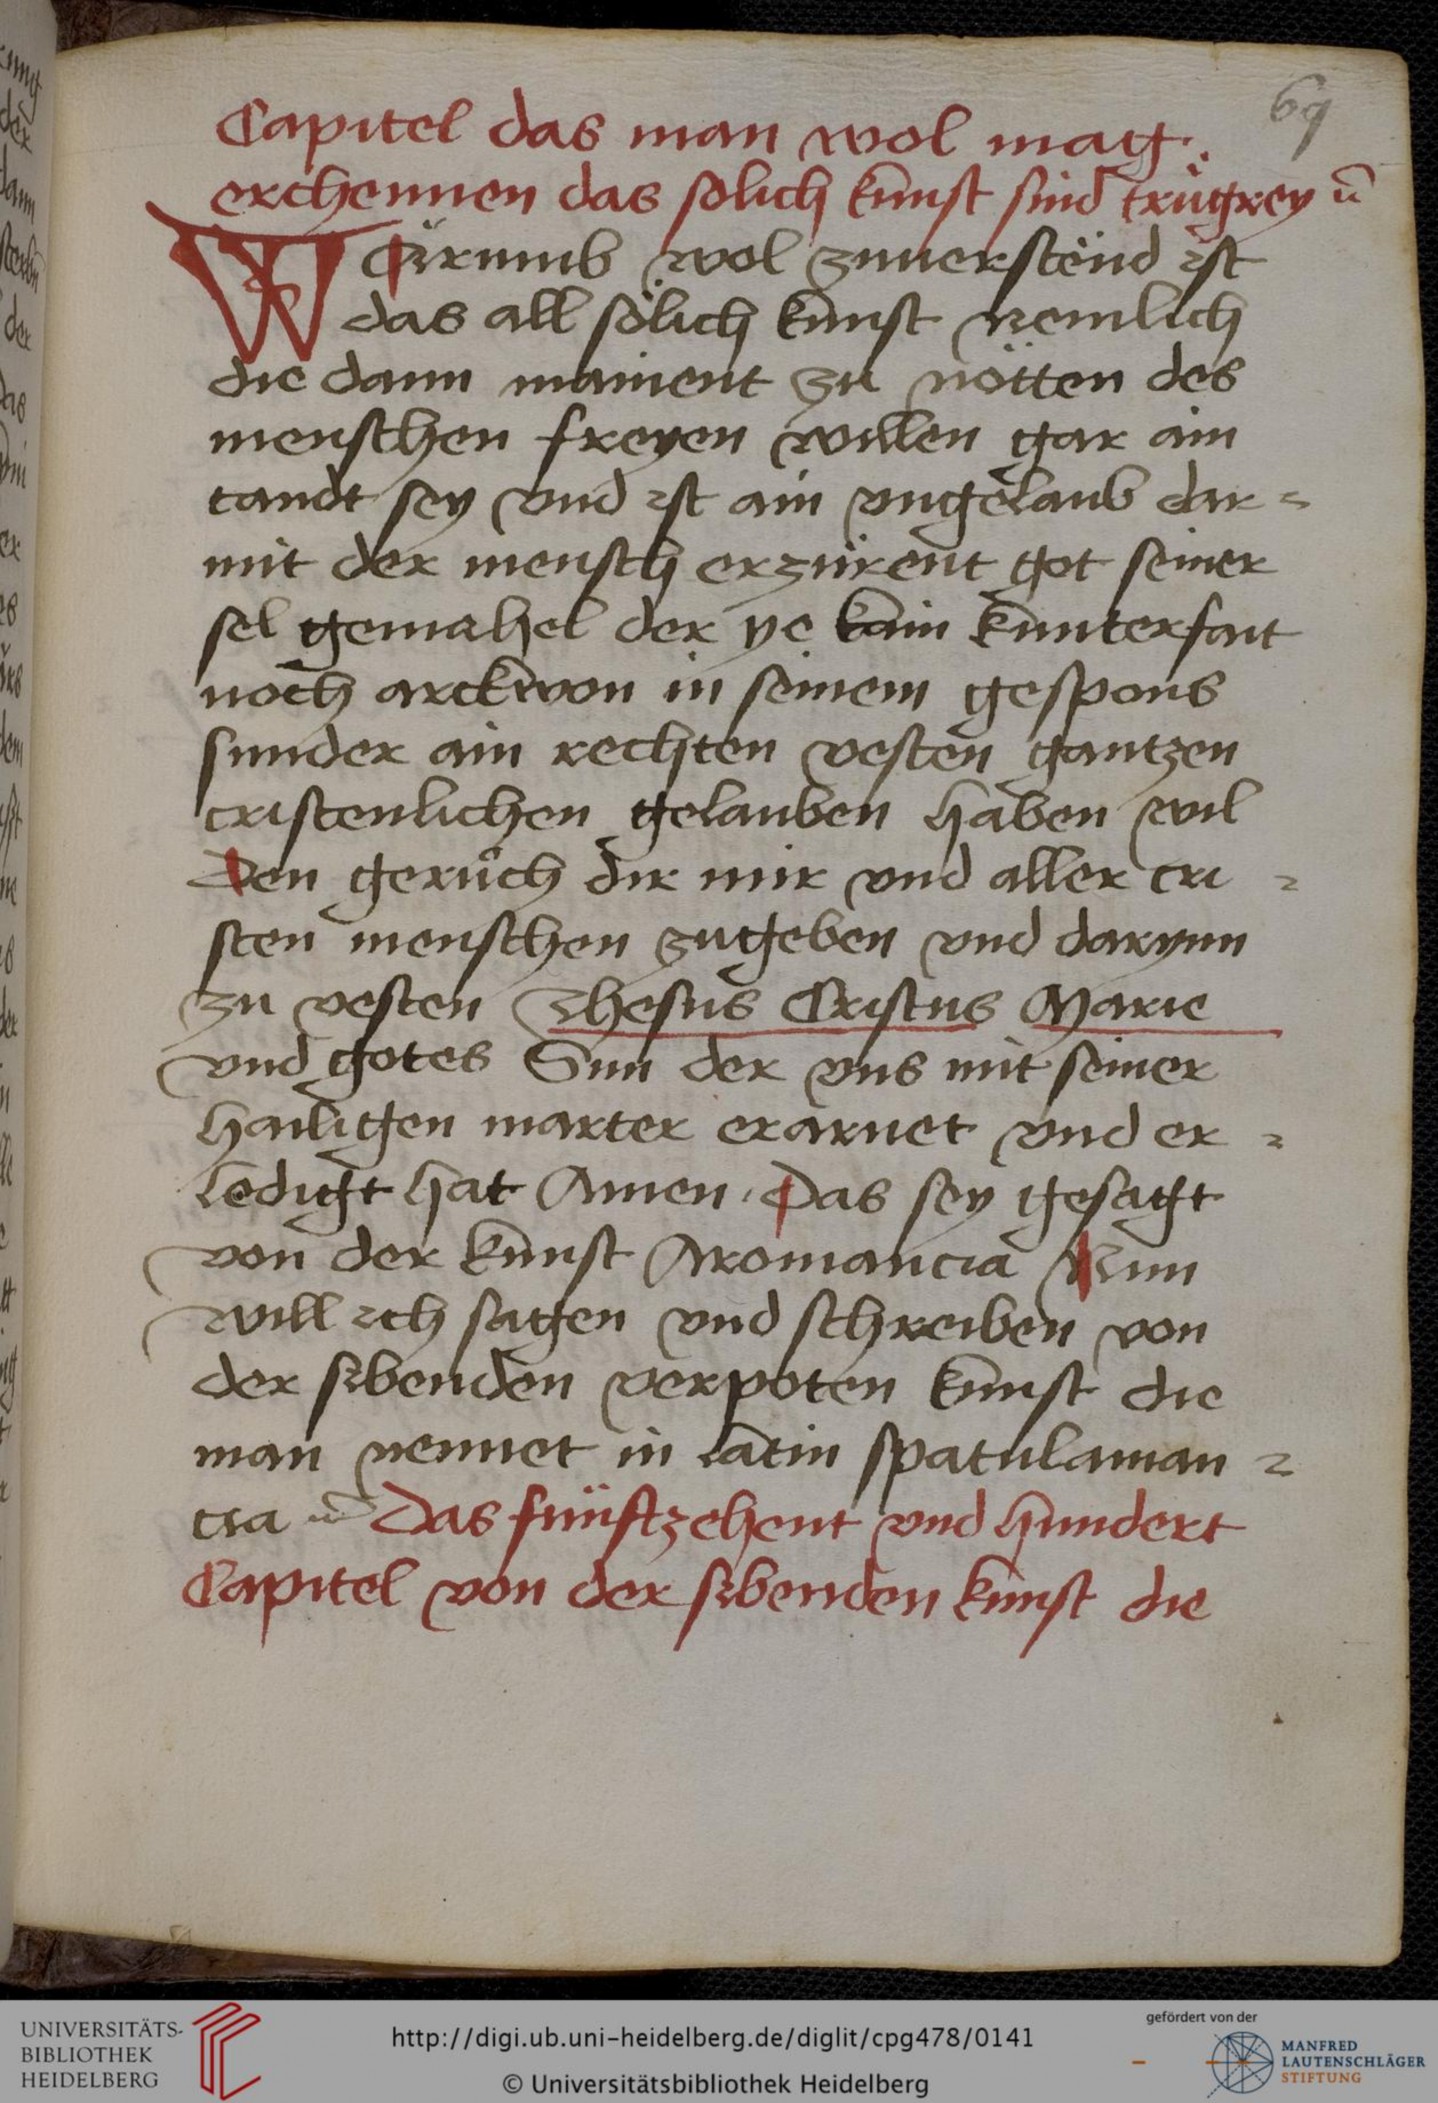 69
Capitel das man wol mag
erchennen das solich kunst sind trügrey ⁊c̄
Warumb wol zuuerstend ist
das all sölich kunst nemlich
die dann mainent zu nötten des
menschen freyen willen gar ain
tandt sey vnd ist ain vngelaub dar=
mit der mensch erzürent got seiner
sel gemahel der ye kain kunterfait
noch arckwon in seinem gespons
sunder ain rechten vesten gantzen
cristenlichen gelauben haben wil
Den geruch dir mir vnd aller cri=
sten menschen zugeben vnd darynn
zu vesten Jhesus Cristus Marie
vnd gotes Sun der vns mit seiner
hailigen marter erarnet vnd er=
ledigt hat Amen. Das sey gesagt
von der kunst Aromancia Nun
will ich sagen vnd schreiben von
der sibenden verpoten kunst die
man nennet in latin spatulaman=
cia ⁊c̄ Das fünftzehent vnd hundert
Capitel von der sibenden kunst die
UNIVERSITÄTS-
BIBLIOTHEK
HEIDELBERG
http://digi.ub.uni-heidelberg.de/diglit/cpg478/0141
© Universitätsbibliothek Heidelberg
gefördert von der
MANFRED
LAUTENSCHLÄGER
STIFTUNG